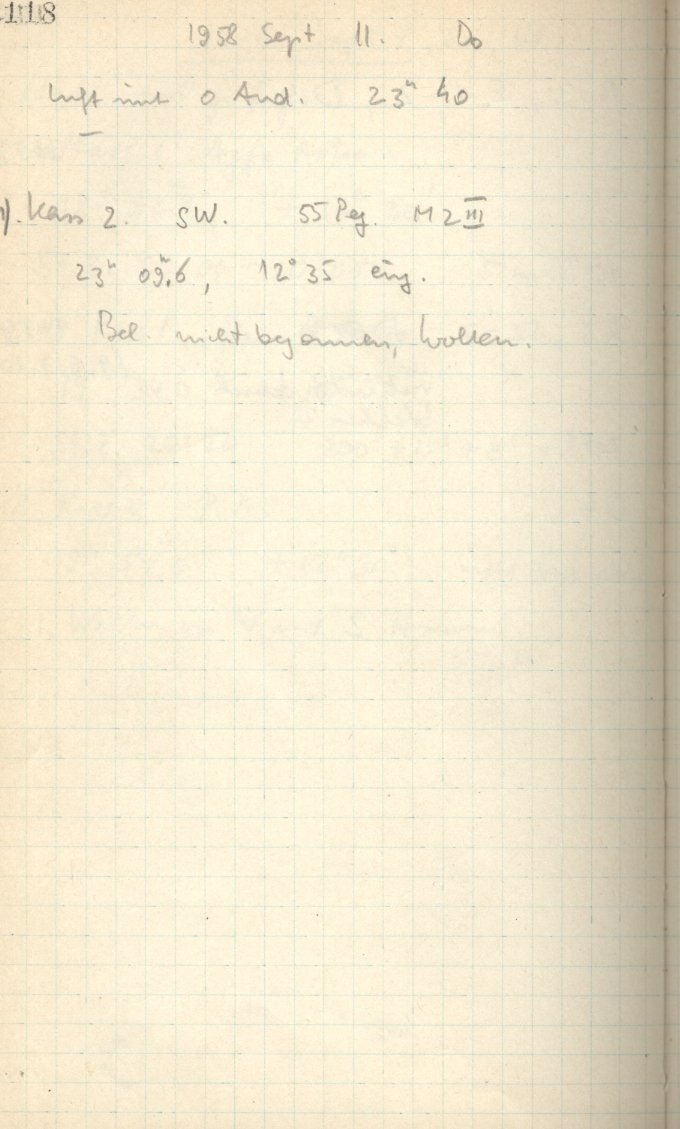 118
1958 Sept 11. Do
Luft mit o And. 23ʰ 40
1). Kass 2. SW. 55 Peg. M2III
23ʰ 09ᵐ.6, 12° 35 eing.
Bel. nicht begonnen, Wolken.